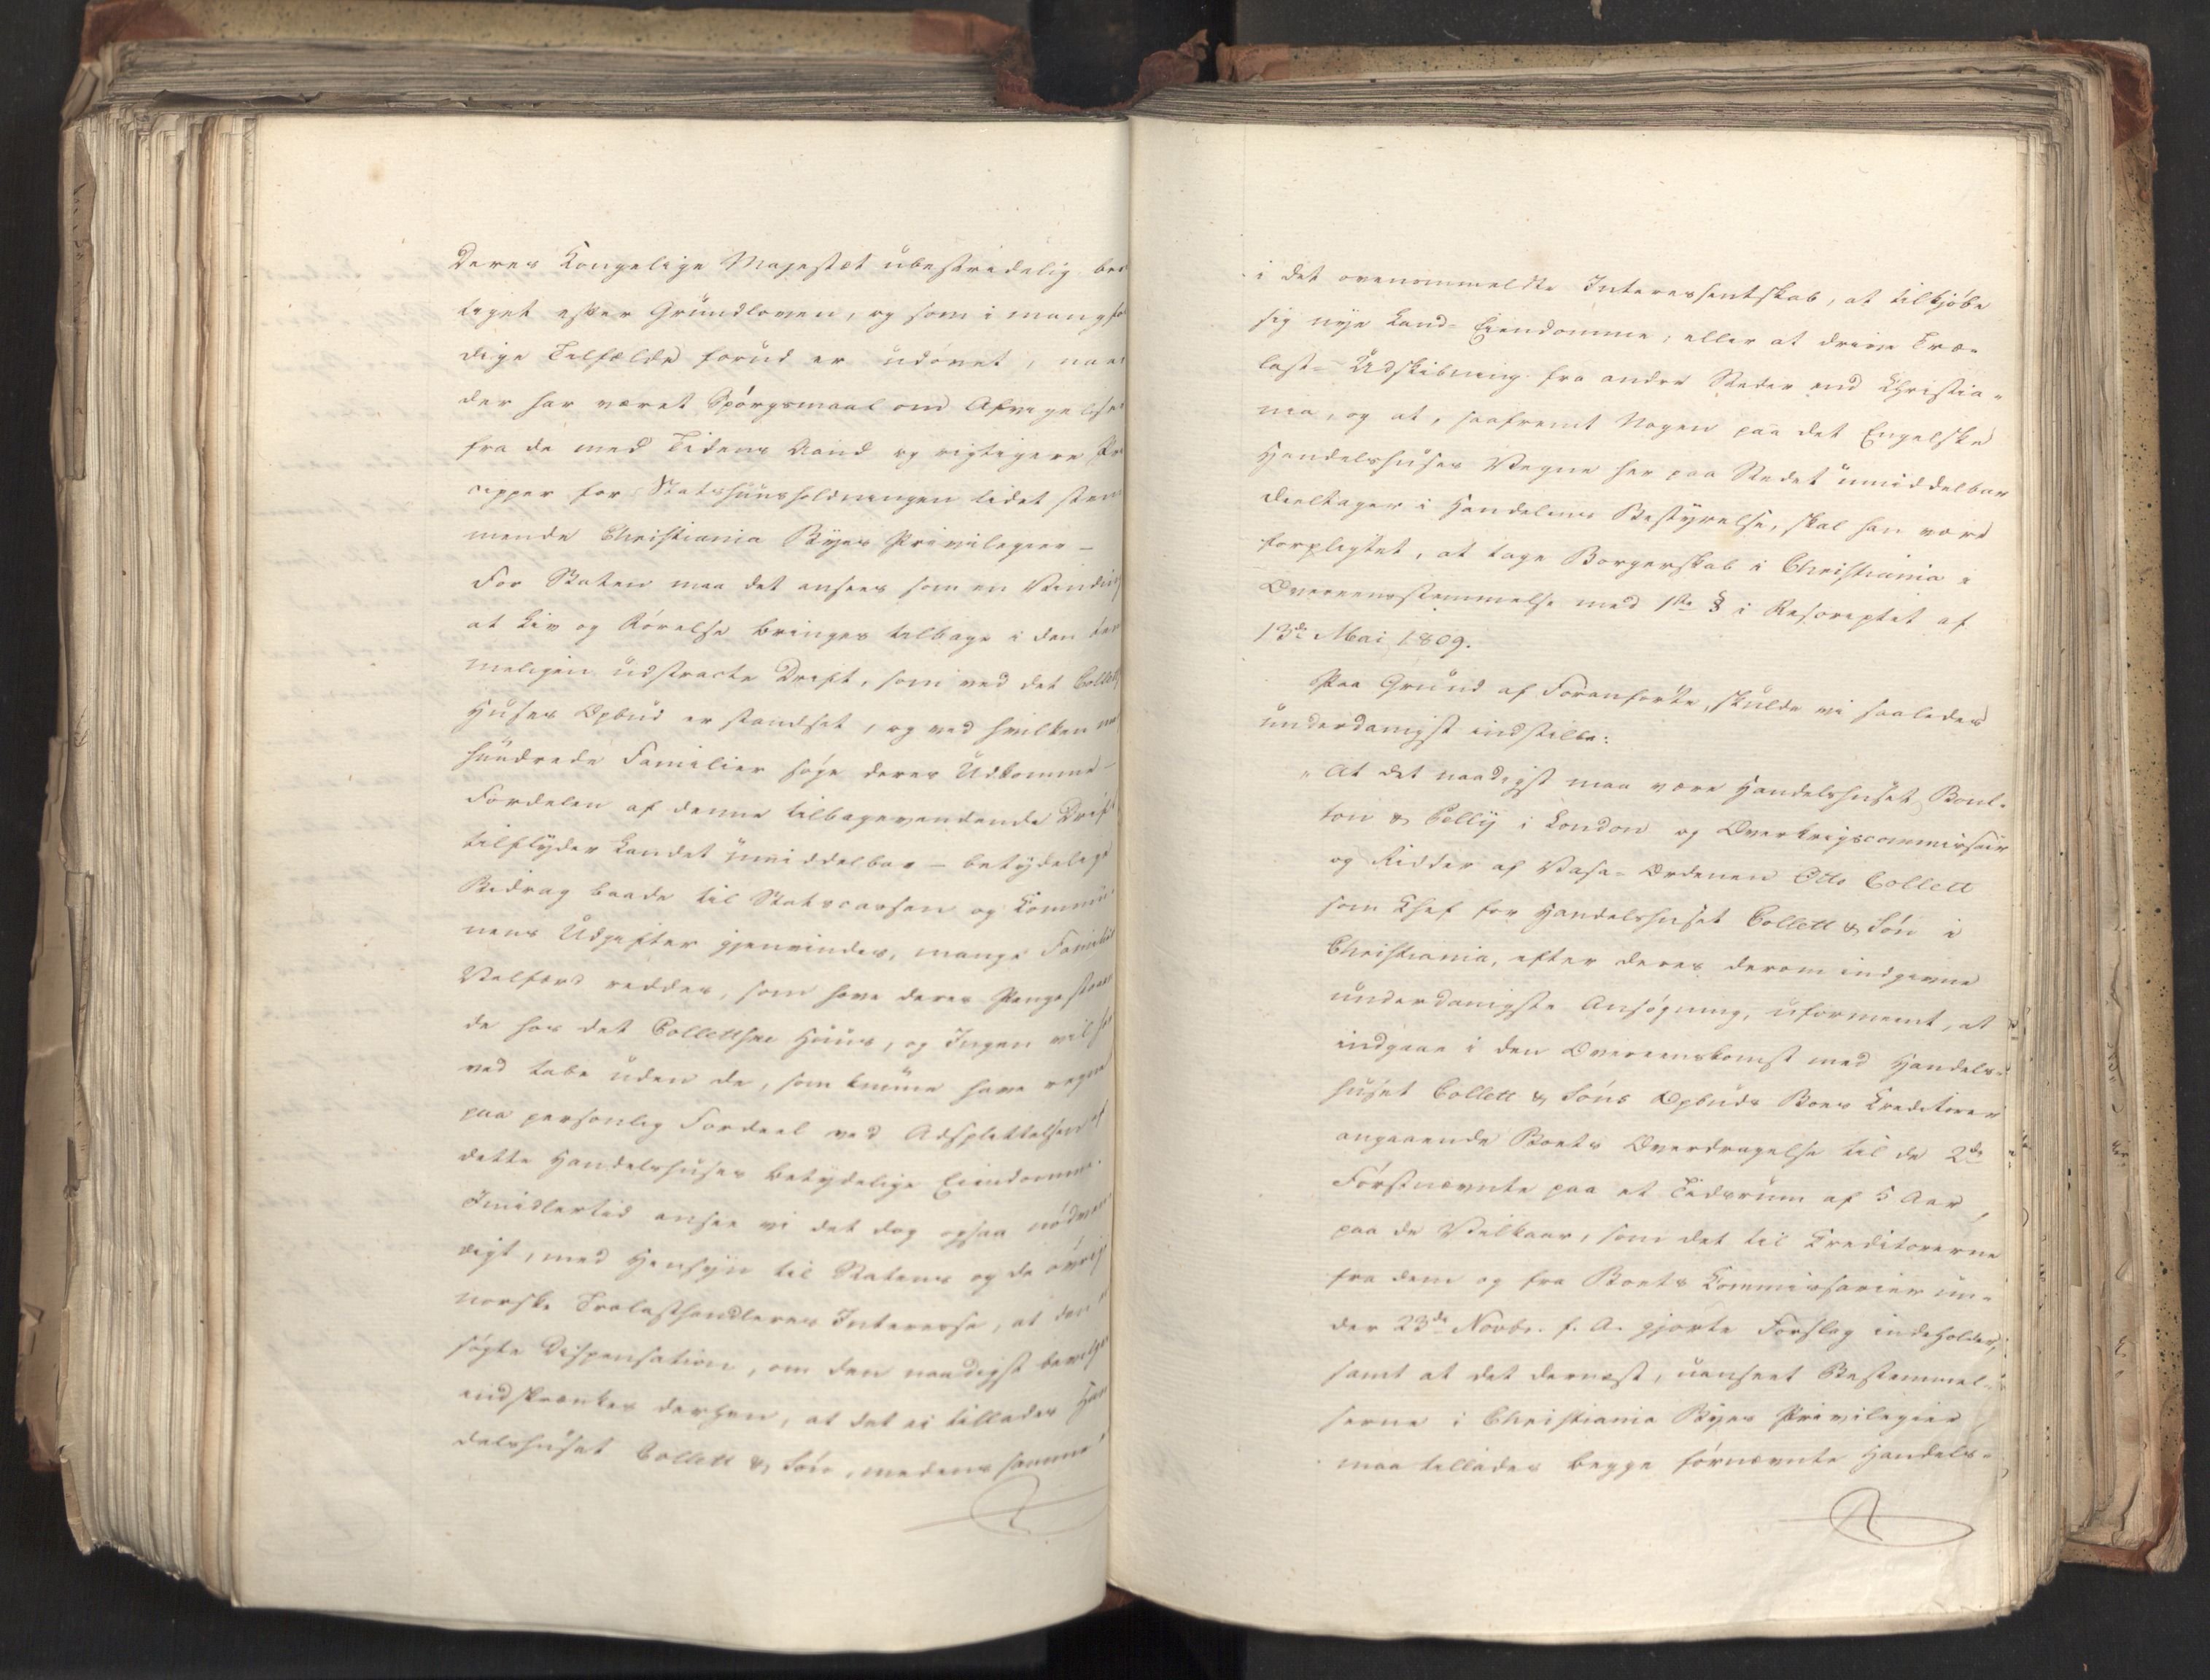 Deres Kongelige Majestæt ubestridelig be¬
taget efter Grundloven, og som i mangfol
dige Tilfælde forud er udövet, naar
der har været Spörgsmaal om Afvigelser
fra de med Tidens Aand og rigtigere Prin
cipper for Statshuusholdningen lidet stem
mende Christiania Byes Privilegier –
For Staten maa det ansees som en Vinding
at Liv og Rörelse bringes tilbage i den
udstracte Drift, som ved det Collettske
Huses Opbud er standset, og ved hvilken
hundrede Familier söge deres Udkomme –
Fordelen af denne tilbagevendende Drift
tilflyder Landet umiddelbar – betydelige
Bidrag baade til Statscassen og Commu
nens Udgifter gjenvindes, mange Familiers
Velfærd reddes, som have deres Penge staaen
de hos det Collettske Huus, og Ingen vil
ved tabe uden de, som kunne have regnet
paa personlig Fordeel ved Adsplittelsen af
dette Handelshuses betydelige Eiendomme.
Imidlertid ansee vi det dog ogsaa nödven
digt, med Hensyn til Statens og de övrige
norske Trælasthandleres Interesse, at den
sögte Dispensation, om den naadigst bevilges
indskrænkes derhen, at det ei tillades Han
delshuset Collett & Sön, medens samme
i det ovenommeldte Interessentskab, at tilkjöbe
sig nye Land-Eiendomme, eller at drive Træ-
last-Udskibning fra andre Steder end Christia-
nia, og at, saafremt Nogen paa det Engelske
Handelshuses Vegne her paa Stedet umiddelbar
deeltager i Handelens Bestyrelse, skal han være
forpligtet, at tage Borgerskab i Christiania i
Overeensstemmelse med 1ste § i Rescriptet af
13de Mai 1809.
Paa Grund af Foranförte, skulde vi saaledes
underdanigst indstille:
"At det naadigst maa være Handelshuset Boul-
ton & Pelly i London og Overkrigscommissair
og Ridder af Vasa-Ordenen Otto Collett
som Chef for Handelshuset Collett & Sön i
Christiania, efter deres derom indgivne
underdanigste Ansögning, uformeent, at
indgaae i den Overeenskomst med Handels-
huset Collett & Söns Opbuds Boes Creditorer
angaaende Boets Overdragelse til de 2de
Förstnævnte paa et Tidsrum af 5 Aar,
paa de Vilkaar, som det til Creditorerne
fra dem og fra Boets Commissarier un-
der 23de Novbr. f. A. gjorte Forslag indeholder,
samt at det dernæst, uanseet Bestemmel-
serne i Christiania Byes Privilegier,
maa tillades begge förnævnte Handels-